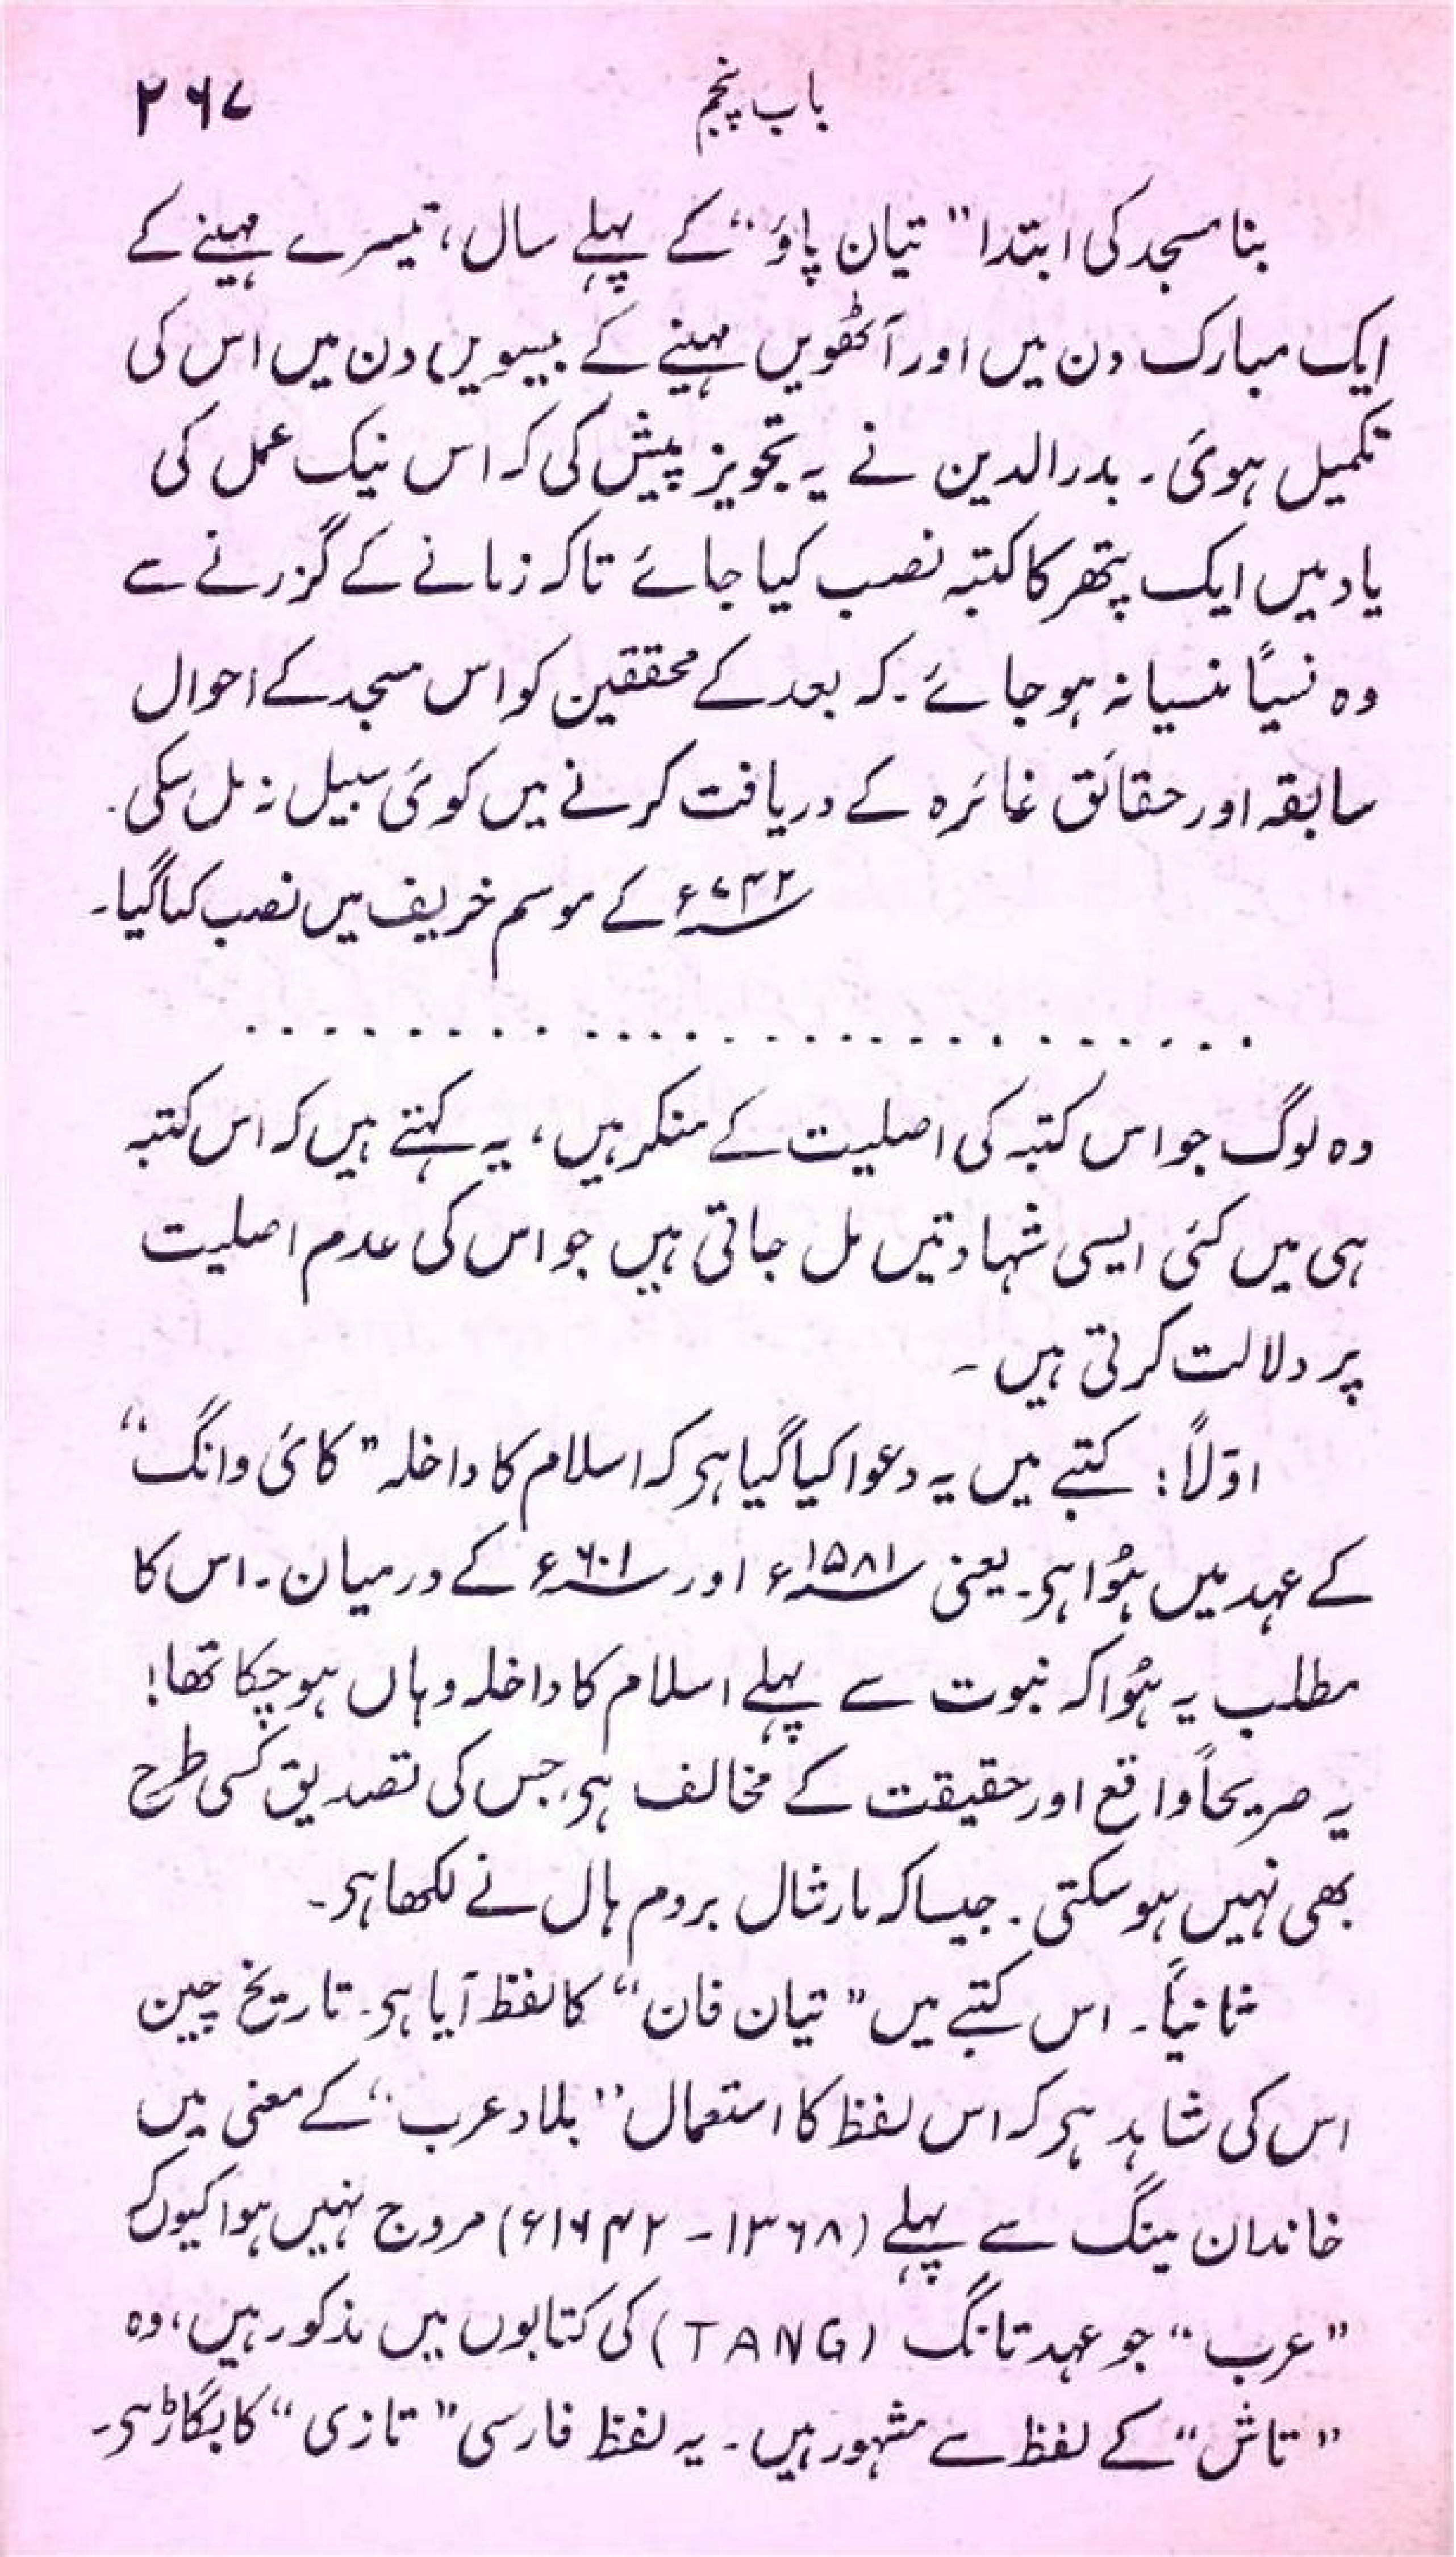 باب پنجم ۲۶۷
بنا مسجد کی ابتدا "تیان پاؤ" کے پہلے سال، تیسرے مہینے کے
ایک مبارک دن میں اور آٹھویں مہینے کے بیسویں دن میں اس کی
تکمیل ہوئی۔ بدرالدین نے یہ تجویز پیش کی کہ اس نیک عمل کی
یاد میں ایک پتھر کا کتبہ نصب کیا جائے تاکہ زمانے کے گزرنے سے
وہ نسیاً منسیا نہ ہو جائے۔ کہ بعد کے محققین کو اس مسجد کے احوال
سابقہ اور حقائق غائرہ کے دریافت کرنے میں کوئی سبیل نہ مل سکی۔
۷۴۲ء کے موسم خریف میں نصب کیا گیا۔
. . . . . . . . . . . . . . . . . . . . . . . . . . .
وہ لوگ جو اس کتبہ کی اصلیت کے منکر ہیں، یہ کہتے ہیں کہ اس کتبہ
ہی میں کئی ایسی شہادتیں مل جاتی ہیں جو اس کی عدم اصلیت
پر دلالت کرتی ہیں۔
اوّلاً: کتبے میں یہ دعوا کیا گیا ہو کہ اسلام کا داخلہ "کائی وانگ"
کے عہد میں ہُوا ہو۔ یعنی ۱۵۸۱ء اور ۶۰۱ء کے درمیان۔ اس کا
مطلب یہ ہُوا کہ نبوت سے پہلے اسلام کا داخلہ وہاں ہو چکا تھا!
یہ صریحاً واقع اور حقیقت کے مخالف ہی، جس کی تصدیق کسی طرح
بھی نہیں ہو سکتی۔ جیسا کہ مارشال بروم ہال نے لکھا ہو۔
ثانیاً۔ اس کتبے میں "تیان فان" کا لفظ آیا ہو۔ تاریخ چین
اس کی شاہد ہو کہ اس لفظ کا استعمال "بلاد عرب" کے معنی میں
خاندان مینگ سے پہلے (۱۳۶۸ - ۱۶۴۲ء) مروج نہیں ہوا کیوں کہ
"عرب" جو عہد تانگ (TANG) کی کتابوں میں مذکور ہیں، وہ
"تاش" کے لفظ سے مشہور ہیں۔ یہ لفظ فارسی "تازی" کا بگاڑ ہو۔